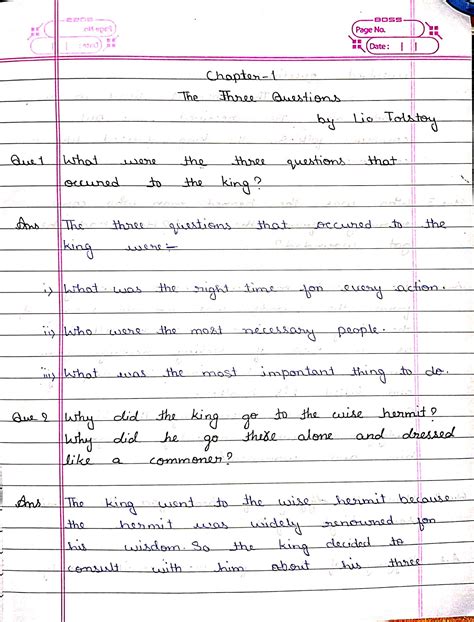 BOSS
Page No.
Date:
Chapter-1
The Three Questions
by Lio Tolstoy
Que 1 What were the three questions that
occured to the king?
Ans The three questions that occured to the
king were:-
i) What was the right time for every action.
ii) Who were the most necessary people.
iii) What was the most important thing to do.
Que 2 Why did the king go to the wise hermit?
Why did he go there alone and dressed
like a commoner?
Ans The king went to the wise hermit because
the hermit was widely renowned for
his wisdom. So the king decided to
consult with him about his three